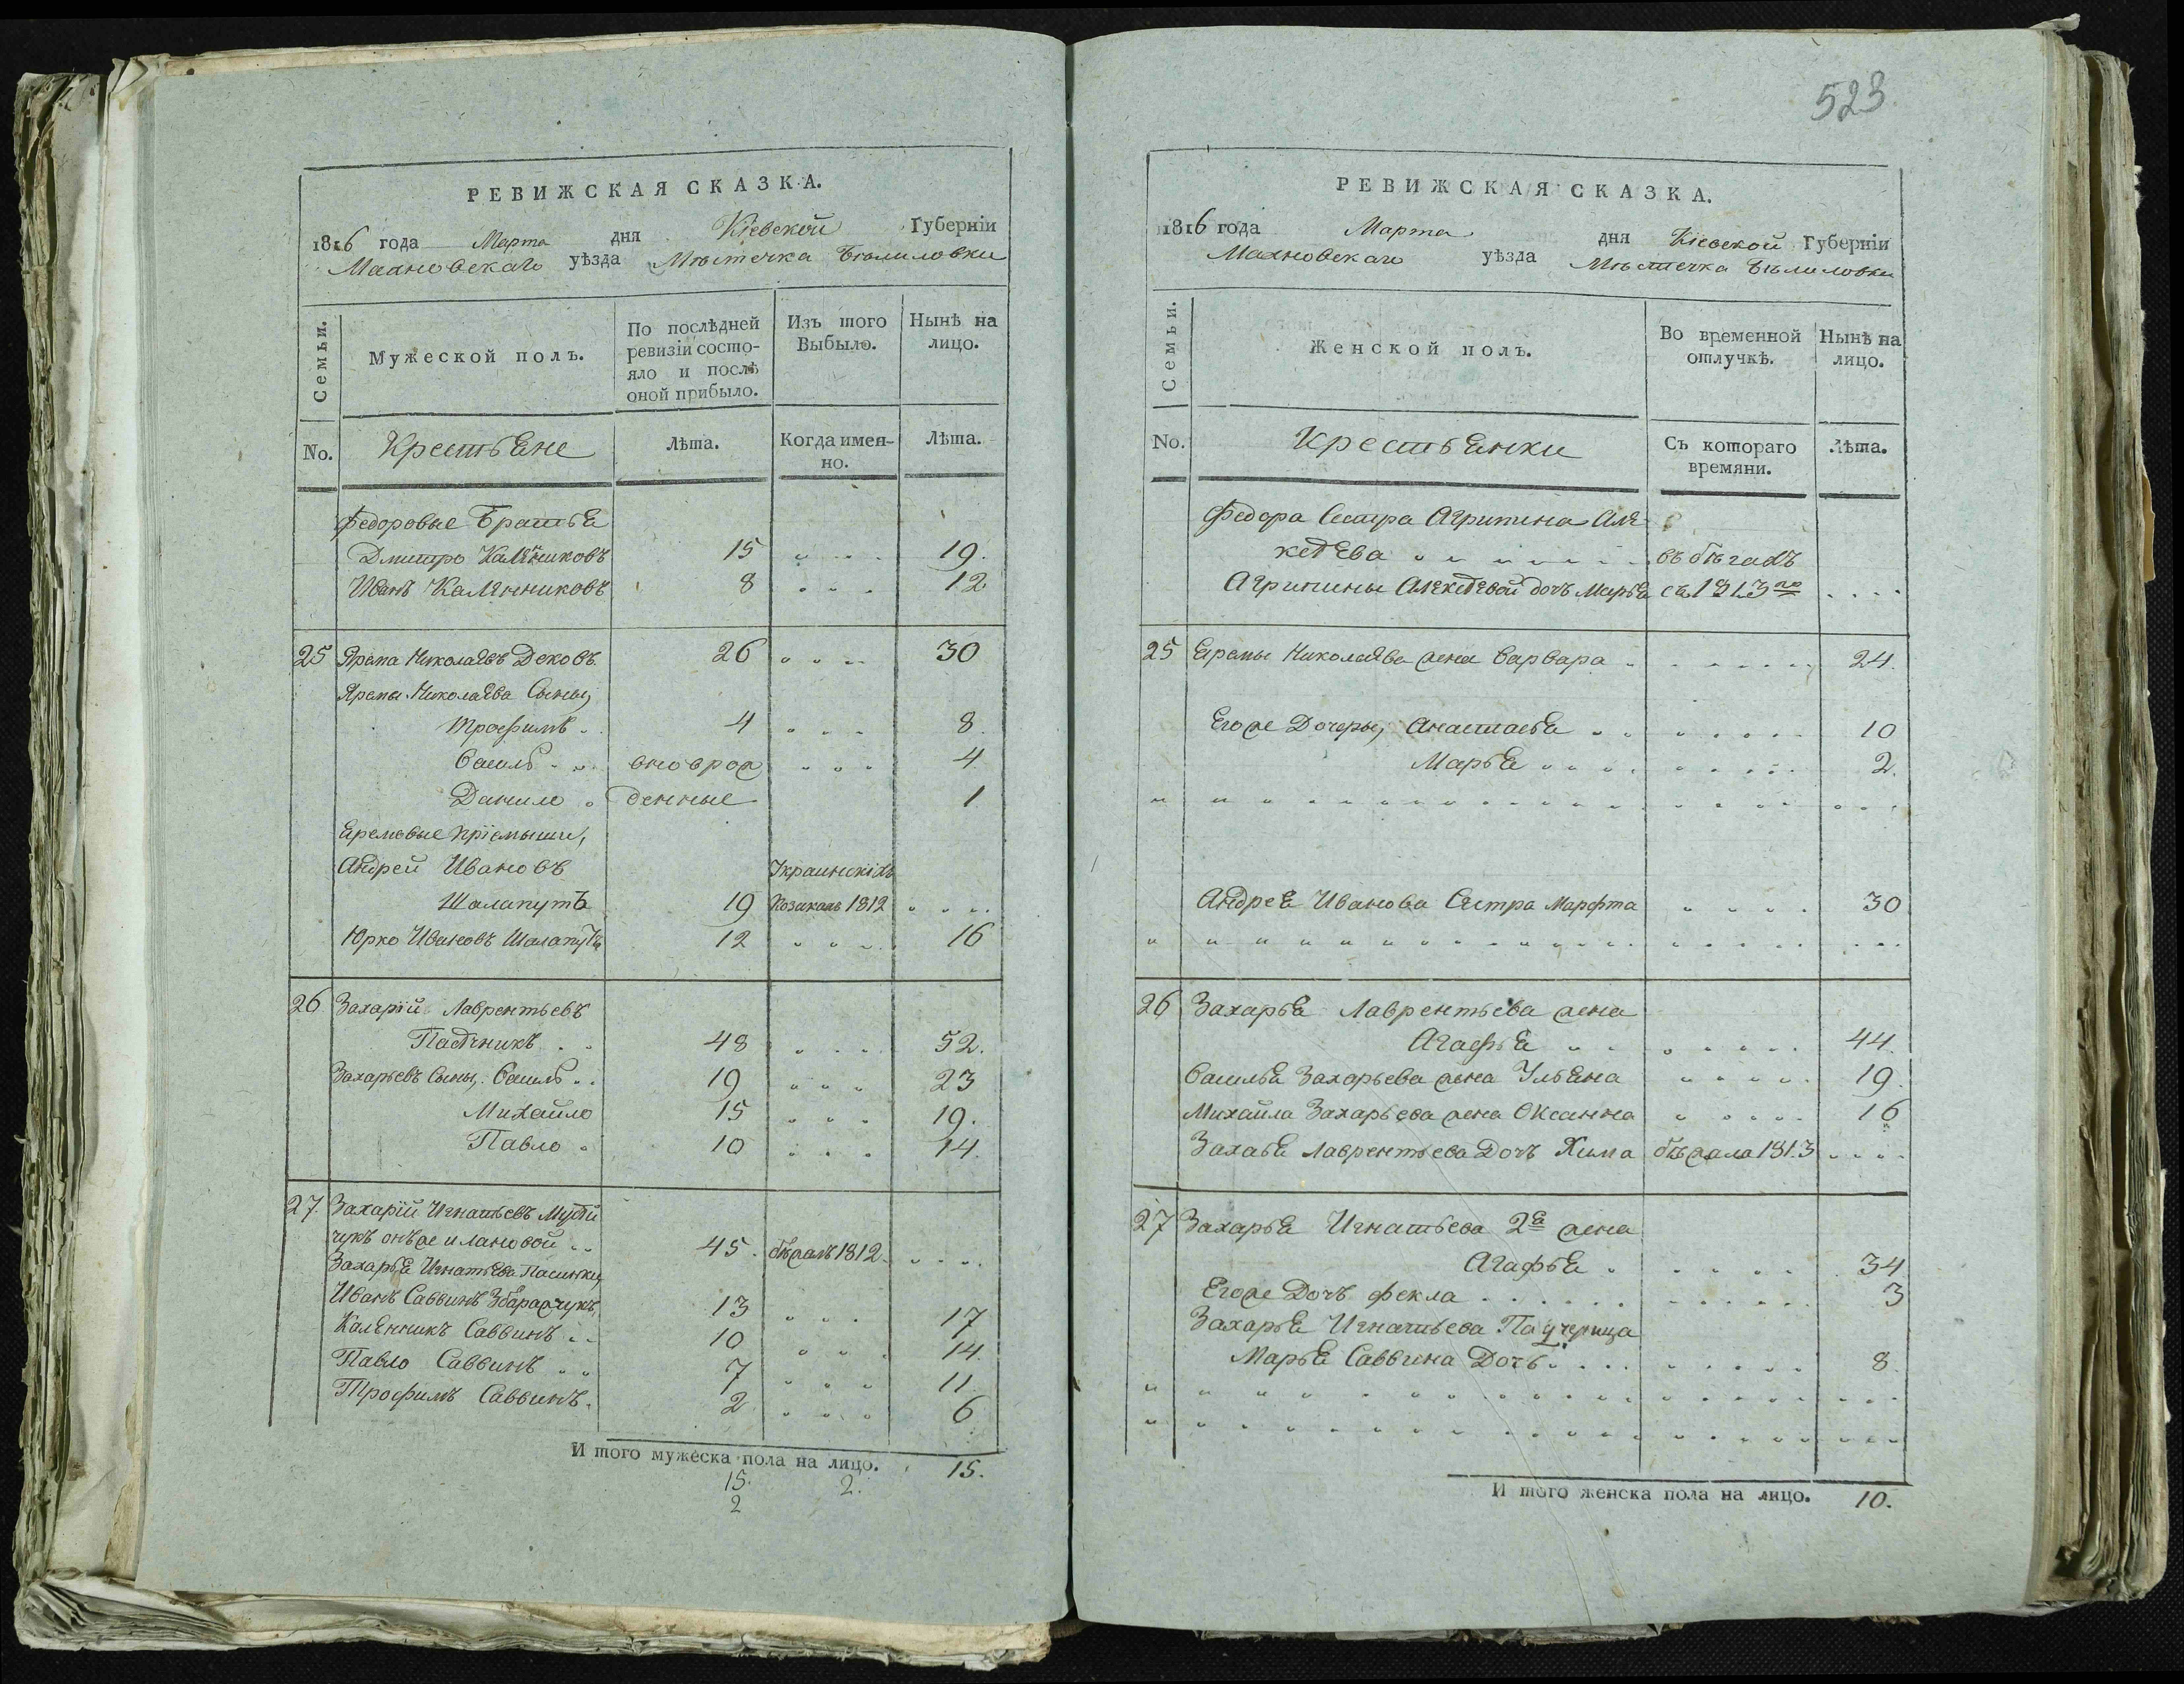 РЕВИЖСКАЯ СКАЗКА.
1816 года Марта дня Кіевской Губерніи
Махновскаго уѣзда Мѣстечка Бѣлиловки
Семьи.
Мужеской полъ.
По послѣдней ревизіи состо-
яло и послѣ оной прибыло.
Изъ того Выбыло.
Нынѣ на лицо.
No.
Крестьяне
Лѣта.
Когда имен-
но.
Лѣта.
Федоровые Братья
Дмитро Каленниковъ 15 19.
Иванъ Каленниковъ 8 12
25 Ярема Николаевъ Дековъ 26 30
Яремы Николаева Сыны,
Трофимъ 4 8
Василь вноврож 4
Данило денные 1
Еремовые пріемыши,
Андрей Ивановъ Украинскіихъ
Шалапутъ 19 Козакахъ 1812
Юрко Ивановъ Шалапутъ 12 16
26 Захарій Лаврентьевъ
Пасечникъ 48 52.
Захарьевъ Сыны, Василь 19 23
Михайло 15 19.
Павло 10 14.
27 Захарій Игнатьевъ
чукъ онъже илановой 45. бѣжалъ 1812
Захарья Игнатьева Пасинки,
Иванъ Саввинъ Збаражчукъ, 13 17
Каленникъ Саввинъ 10 14.
Павло Саввинъ 7 11
Трофимъ Саввинъ. 2 6
И того мужеска пола на лицо. 15.
15. 2.
2
523
РЕВИЖСКАЯ СКАЗКА.
1816 года Марта дня Кіевской Губерніи
Махновскаго уѣзда Мѣстечка Бѣлиловки
Семьи.
Женской полъ.
Во временной отлучкѣ.
Нынѣ на лицо.
No.
Крестьянки
Съ котораго времяни.
Лѣта.
Федора Сестра Агрипина Але
ксѣева въ бѣгахъ
Агрипины Алексѣевой дочь Марья съ 1813го
25 Еремы Николаева жена Варвара 24.
Егоже Дочеры, Анастасья 10
Марья 2.
Андрея Иванова Сестра Марфта 30
26 Захарья Лаврентьева жена
Агафья 44.
Василья Захарьева жена Ульяна 19.
Михайла Захарьева жена Оксанна 16
Захарья Лаврентьева Дочь Хима бѣжала 1813
27 Захарья Игнатьева 2я жена
Агафья 34
Егоже Дочь Фекла 3
Захарья Игнатьева Падчерица
Марья Саввина Дочь 8.
И того женска пола на лицо. 10.